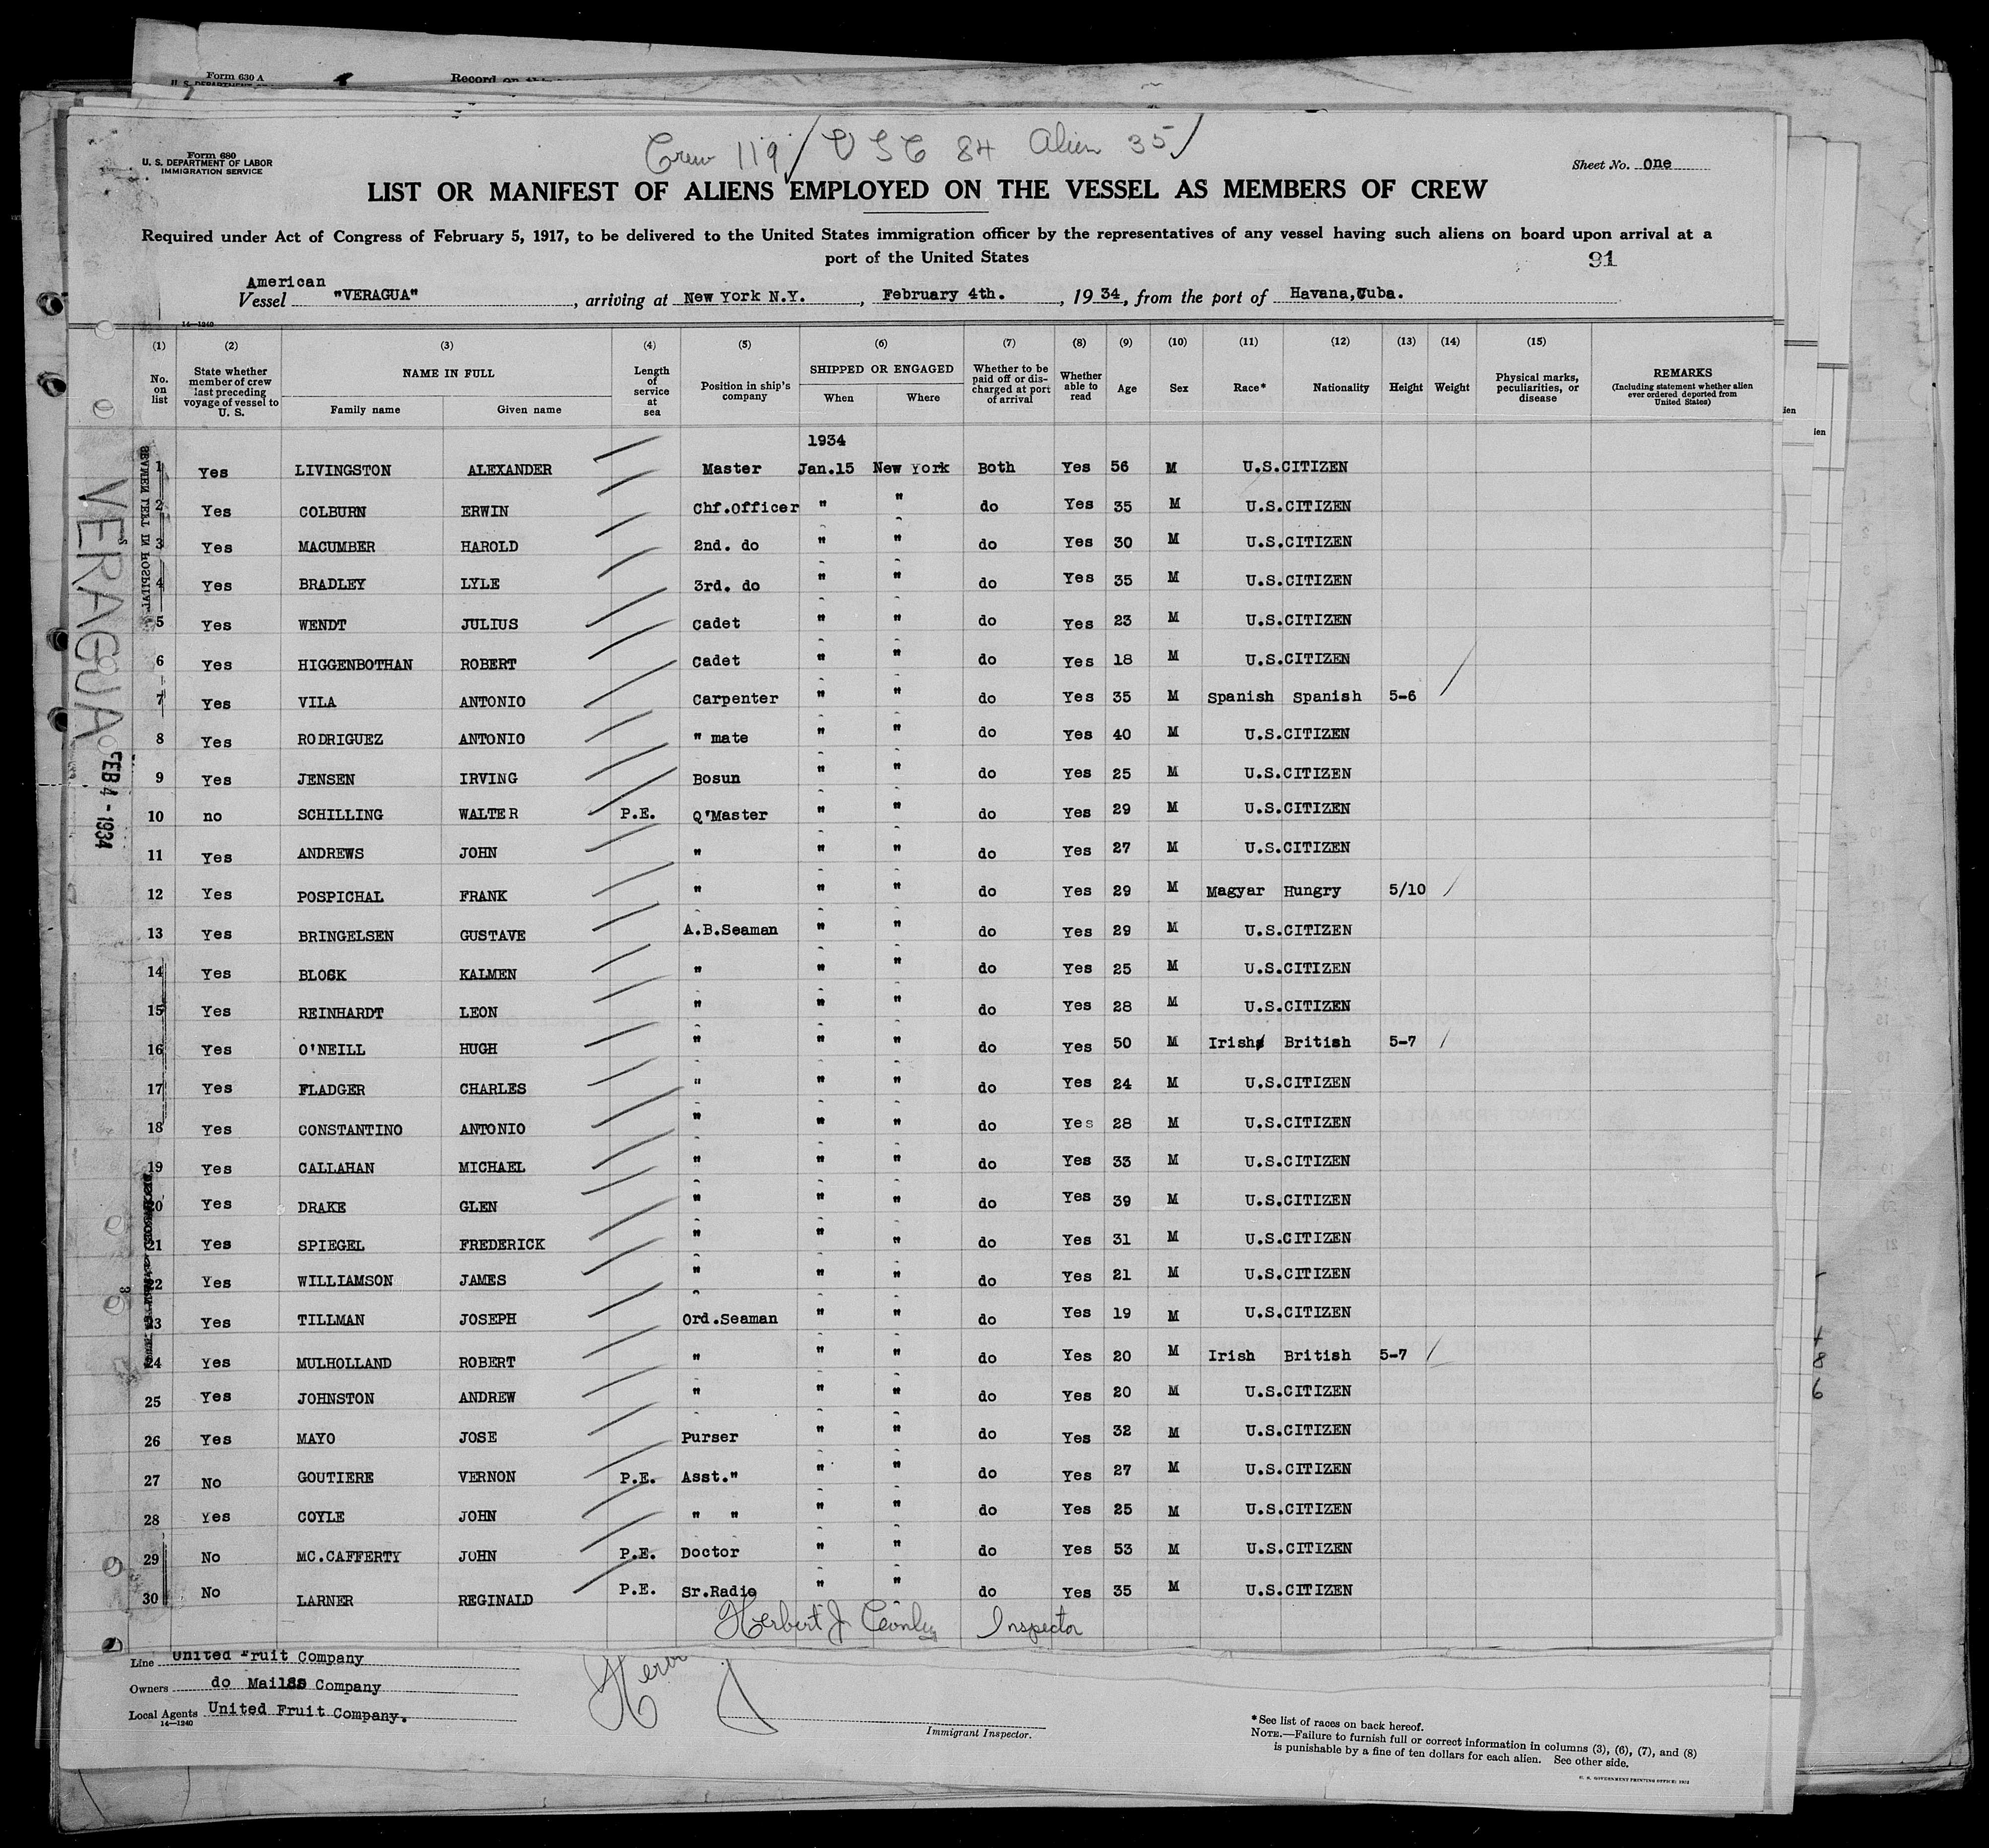 Form 630 A
U. S. DEPARTMENT
Record on
Crew 119 / U S C 84 Alien 35 /
Form 680
U. S. DEPARTMENT OF LABOR
IMMIGRATION SERVICE
Sheet No. One
LIST OR MANIFEST OF ALIENS EMPLOYED ON THE VESSEL AS MEMBERS OF CREW
Required under Act of Congress of February 5, 1917, to be delivered to the United States immigration officer by the representatives of any vessel having such aliens on board upon arrival at a
port of the United States
91
American
Vessel "VERAGUA", arriving at New York N.Y., February 4th., 1934, from the port of Havana, Cuba.
14—1240
(1) (2) (3) (4) (5) (6) (7) (8) (9) (10) (11) (12) (13) (14) (15)
No. on list State whether member of crew last preceding voyage of vessel to U. S. NAME IN FULL Family name Given name Length of service at sea Position in ship's company SHIPPED OR ENGAGED When Where Whether to be paid off or discharged at port of arrival Whether able to read Age Sex Race* Nationality Height Weight Physical marks, peculiarities, or disease REMARKS (Including statement whether alien ever ordered deported from United States)
1934
1 Yes LIVINGSTON ALEXANDER Master Jan.15 New York Both Yes 56 M U.S.CITIZEN
2 Yes COLBURN ERWIN Chf.Officer " " do Yes 35 M U.S.CITIZEN
3 Yes MACUMBER HAROLD 2nd. do " " do Yes 30 M U.S.CITIZEN
4 Yes BRADLEY LYLE 3rd. do " " do Yes 35 M U.S.CITIZEN
5 Yes WENDT JULIUS Cadet " " do Yes 23 M U.S.CITIZEN
6 Yes HIGGENBOTHAN ROBERT Cadet " " do Yes 18 M U.S.CITIZEN
7 Yes VILA ANTONIO Carpenter " " do Yes 35 M Spanish Spanish 5-6
8 Yes RODRIGUEZ ANTONIO " mate " " do Yes 40 M U.S.CITIZEN
9 Yes JENSEN IRVING Bosun " " do Yes 25 M U.S.CITIZEN
10 no SCHILLING WALTER P.E. Q'Master " " do Yes 29 M U.S.CITIZEN
11 Yes ANDREWS JOHN " " " do Yes 27 M U.S.CITIZEN
12 Yes POSPICHAL FRANK " " " do Yes 29 M Magyar Hungry 5/10
13 Yes BRINGELSEN GUSTAVE A.B.Seaman " " do Yes 29 M U.S.CITIZEN
14 Yes BLOSK KALMEN " " " do Yes 25 M U.S.CITIZEN
15 Yes REINHARDT LEON " " " do Yes 28 M U.S.CITIZEN
16 Yes O'NEILL HUGH " " " do Yes 50 M Irish British 5-7
17 Yes FLADGER CHARLES " " " do Yes 24 M U.S.CITIZEN
18 Yes CONSTANTINO ANTONIO " " " do Yes 28 M U.S.CITIZEN
19 Yes CALLAHAN MICHAEL " " " do Yes 33 M U.S.CITIZEN
20 Yes DRAKE GLEN " " " do Yes 39 M U.S.CITIZEN
21 Yes SPIEGEL FREDERICK " " " do Yes 31 M U.S.CITIZEN
22 Yes WILLIAMSON JAMES " " " do Yes 21 M U.S.CITIZEN
23 Yes TILLMAN JOSEPH Ord.Seaman " " do Yes 19 M U.S.CITIZEN
24 Yes MULHOLLAND ROBERT " " " do Yes 20 M Irish British 5-7
25 Yes JOHNSTON ANDREW " " " do Yes 20 M U.S.CITIZEN
26 Yes MAYO JOSE Purser " " do Yes 32 M U.S.CITIZEN
27 No GOUTIERE VERNON P.E. Asst." " " do Yes 27 M U.S.CITIZEN
28 Yes COYLE JOHN " " " " do Yes 25 M U.S.CITIZEN
29 No MC.CAFFERTY JOHN P.E. Doctor " " do Yes 53 M U.S.CITIZEN
30 No LARNER REGINALD P.E. Sr.Radio " " do Yes 35 M U.S.CITIZEN
Herbert J Inspector
VERAGUA
FEB 4 - 1934
SEAMEN LEFT IN HOSPITAL
Line United Fruit Company
Owners do Mail SS Company
Local Agents United Fruit Company.
14—1240
Immigrant Inspector.
*See list of races on back hereof.
NOTE.—Failure to furnish full or correct information in columns (3), (6), (7), and (8)
is punishable by a fine of ten dollars for each alien. See other side.